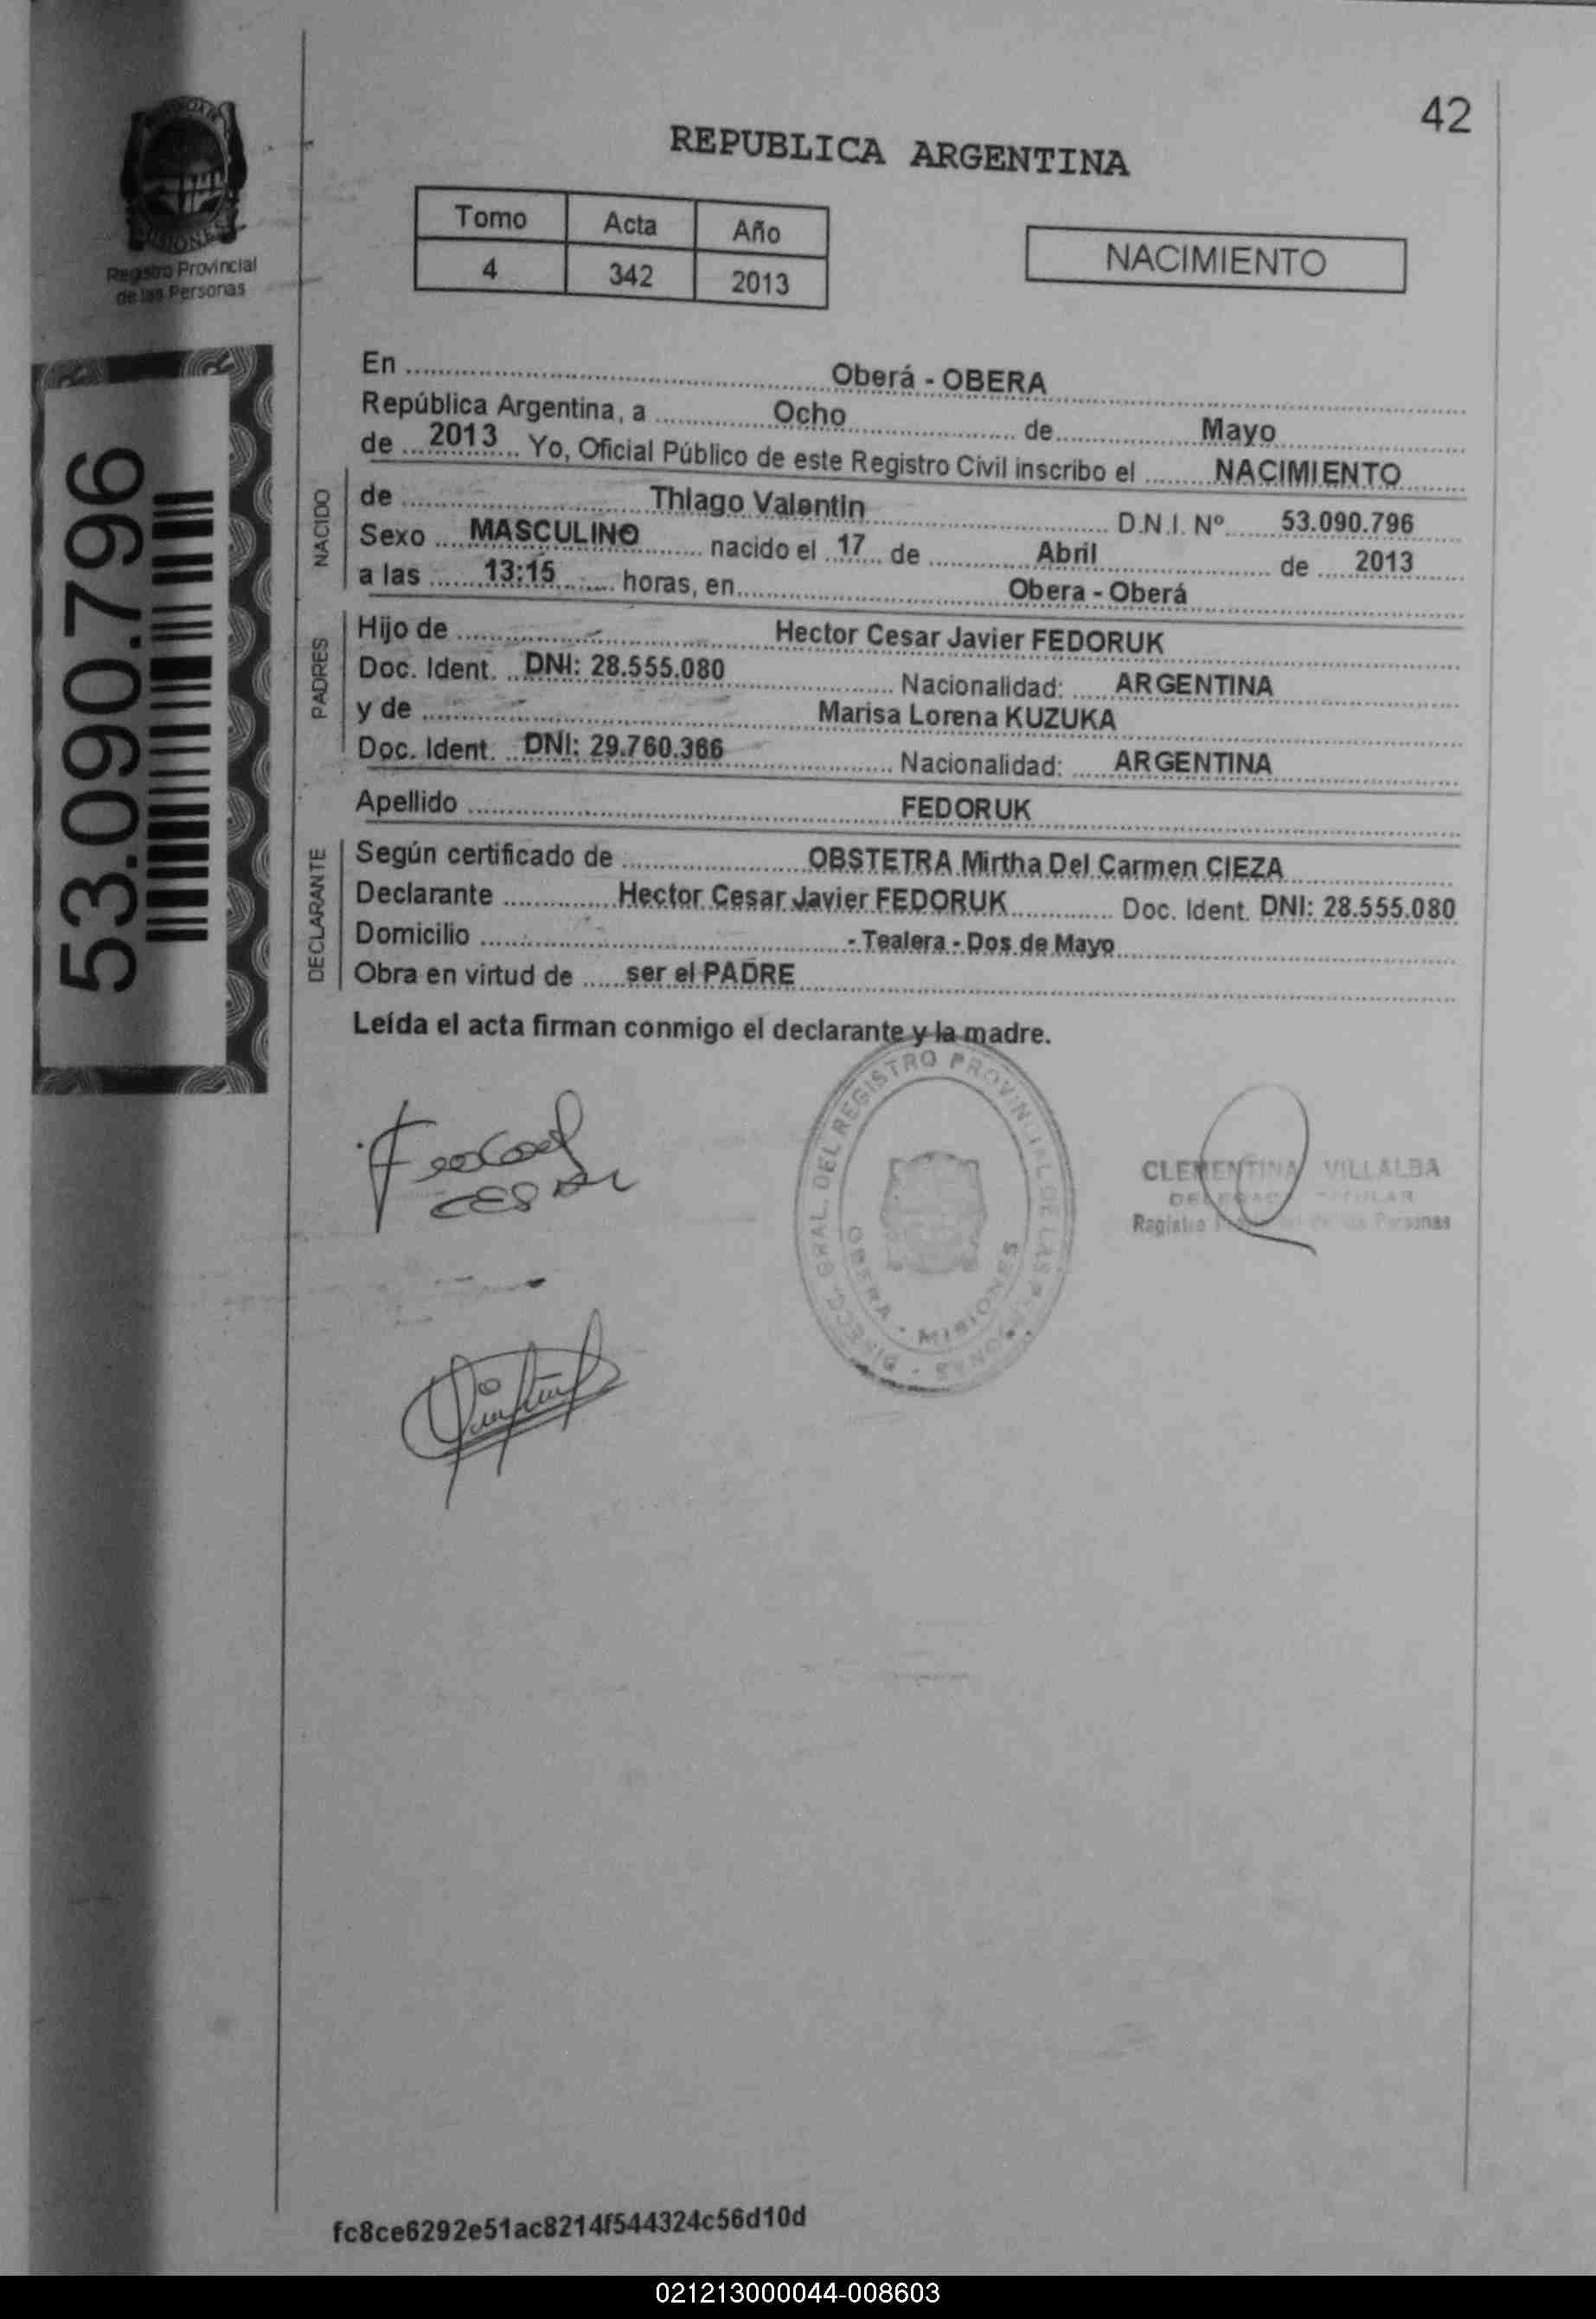 42
REPUBLICA ARGENTINA
Registro Provincial
de las Personas
Tomo Acta Año
4 342 2013
NACIMIENTO
53.090.796
En Oberá - OBERA
República Argentina, a Ocho de Mayo
de 2013 Yo, Oficial Público de este Registro Civil inscribo el NACIMIENTO
NACIDO
de Thiago Valentin D.N.I. Nº 53.090.796
Sexo MASCULINO nacido el 17 de Abril de 2013
a las 13:15 horas, en Obera - Oberá
PADRES
Hijo de Hector Cesar Javier FEDORUK
Doc. Ident. DNI: 28.555.080 Nacionalidad: ARGENTINA
y de Marisa Lorena KUZUKA
Doc. Ident. DNI: 29.760.366 Nacionalidad: ARGENTINA
Apellido FEDORUK
DECLARANTE
Según certificado de OBSTETRA Mirtha Del Carmen CIEZA
Declarante Hector Cesar Javier FEDORUK Doc. Ident. DNI: 28.555.080
Domicilio - Tealera - Dos de Mayo
Obra en virtud de ser el PADRE
Leída el acta firman conmigo el declarante y la madre.
DIRECC. GRAL. DEL REGISTRO PROVINCIAL DE LAS PERSONAS
OBERA - MISIONES
CLEMENTINA VILLALBA
Registro de las Personas
fc8ce6292e51ac8214f544324c56d10d
021213000044-008603